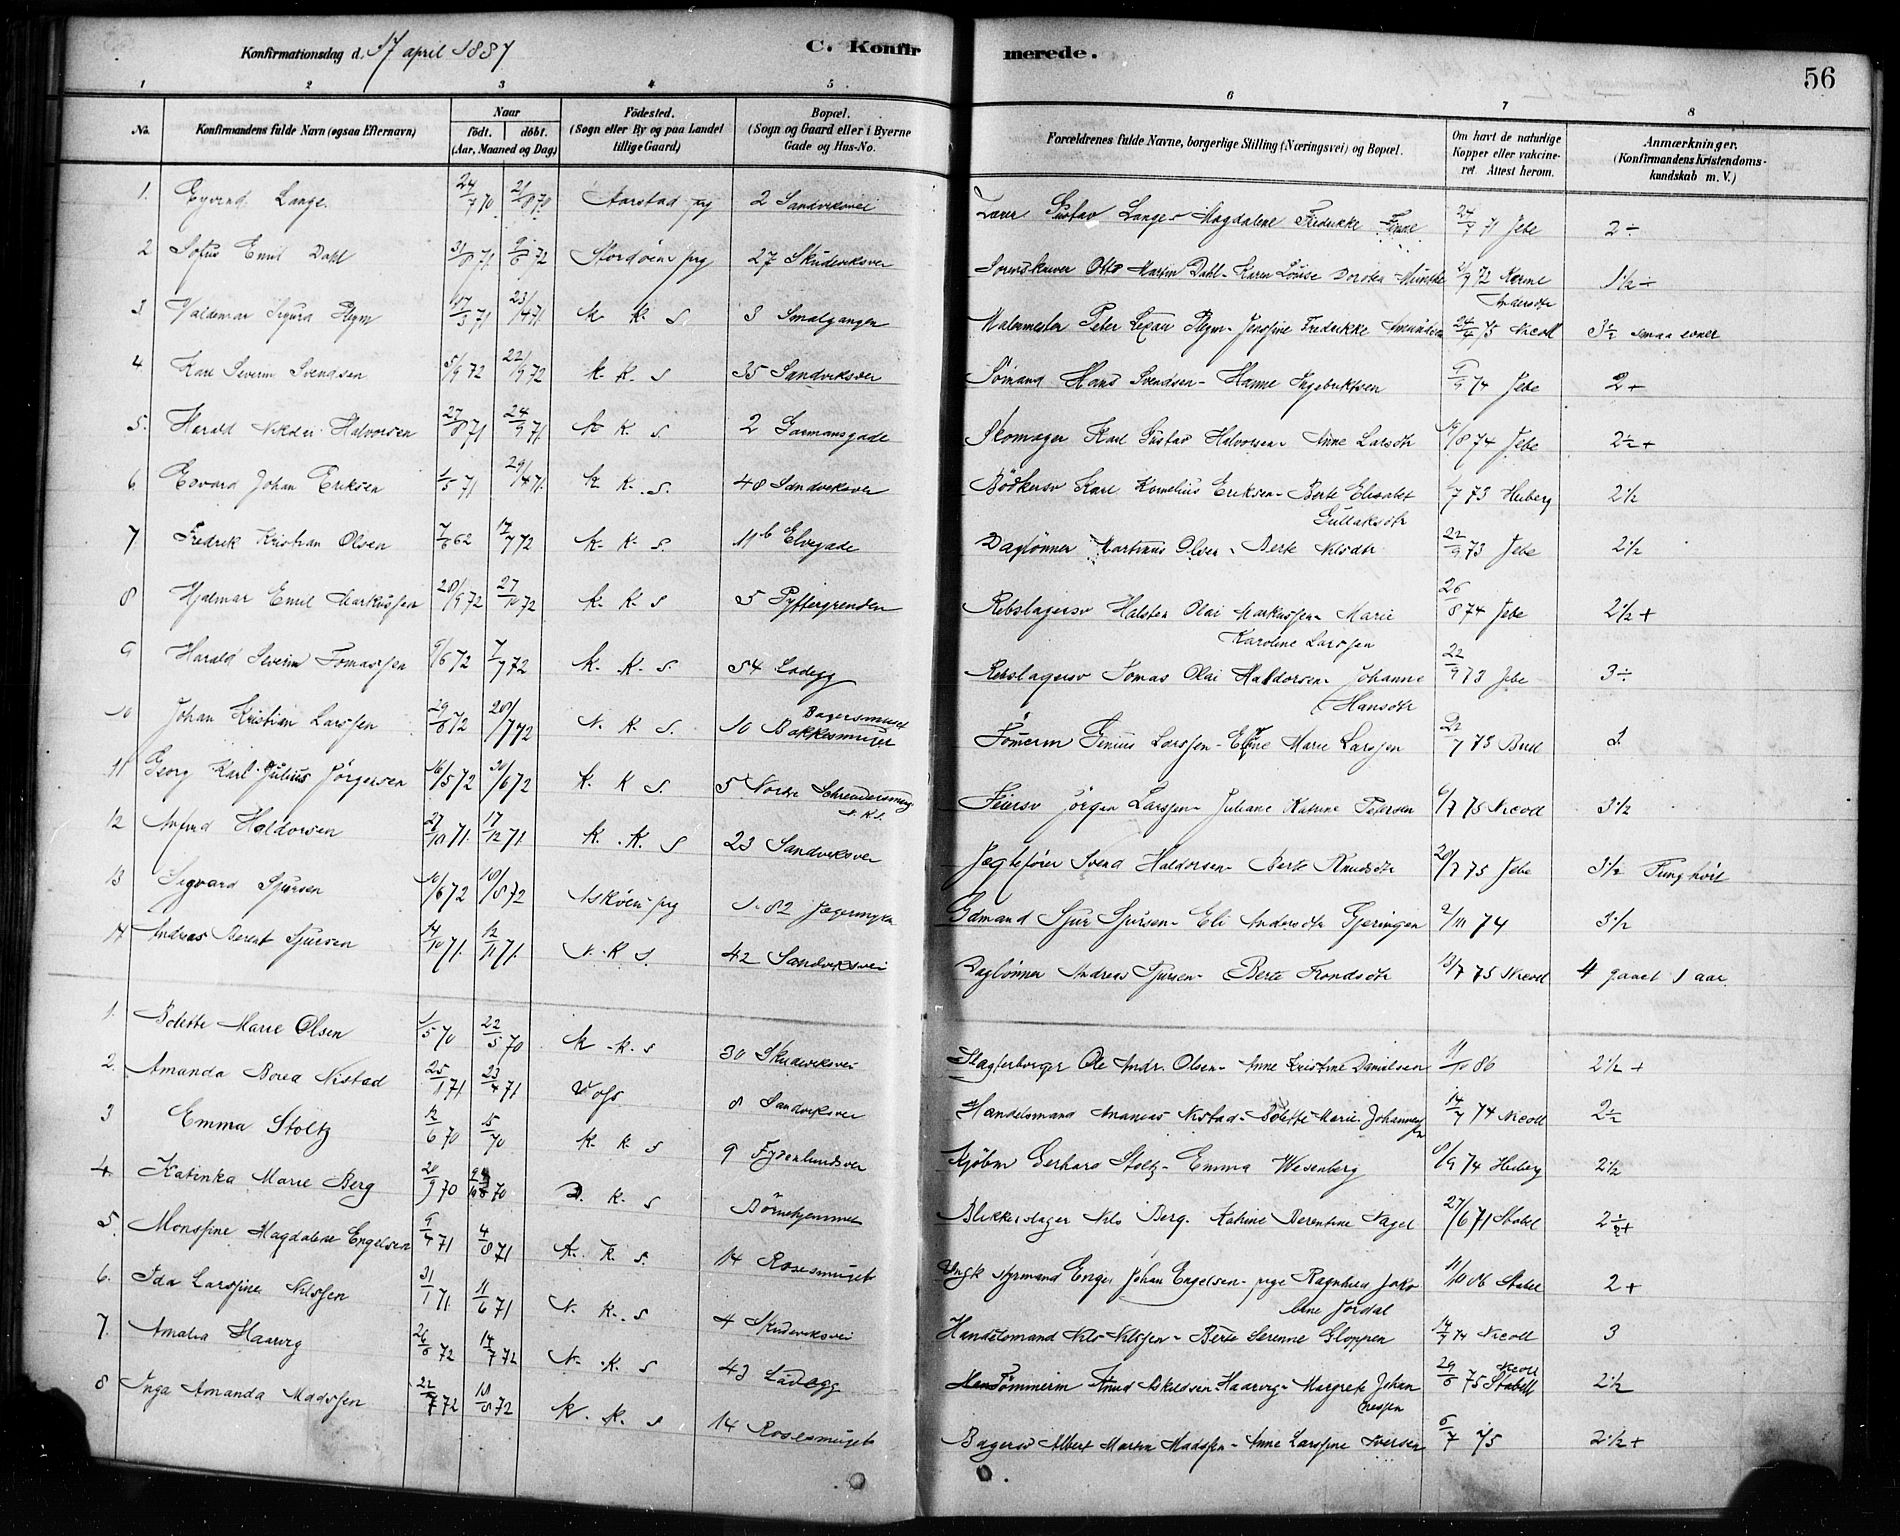 Konfirmationsdag d. 17 april 1887
C. Konfirmerede.
56
1 2 3 4 5 6 7 8
No. Konfirmandens fulde Navn (ogsaa Efternavn) Naar født. døbt. (Aar, Maaned og Dag) Fødested. (Sogn eller By og paa Landet tillige Gaard) Bopæl. (Sogn og Gaard eller i Byerne Gade og Hus-No. Forældrenes fulde Navne, borgerlige Stilling (Næringsvei) og Bopæl. Om havt de naturlige Kopper eller vakcineret. Attest herom. Anmærkninger. (Konfirmandens Kristendomskundskab m. V.)
1. Eyvind Lange. 24/7 70 21/8 70 Aarstad prg 2 Sandviksvei Lærer Gustav Lange - Magdalene Fredrikke 24/7 71 Jebe 2 ÷
2 Sofus Emil Dahl 31/8 71 9/6 72 Stordøens prg 27 Skudeviksvei Sorenskriver Otto Martin Dahl - Karen Louise Dorotea Munthe 2/9 72 1½ ÷
3 Valdemar Sigurd Plym 17/3 71 23/4 71 K K. S. 3 Smalgangen Malermester Peter Plym - Josefine Fredrikke 24/4 75 Nicoll 3½ smaa evner
4 Karl Severin Svendsen 5/9 72 22/9 72 K. K. S 35 Sandviksvei Sømand Hans Svendsen - Hanne Ingebriktsen 9/9 74 Jebe 2 +
5. Harald Nikolai Halvorsen 27/8 71 24/9 71 K K. S. 2 Formansgade Skomager Karl Gustav Halvorsen - Anne Larsdtr 19/8 74 Jebe 2½ +
6. Edvard Johan Eriksen 1/5 71 29/4 71. K K. S. 48 Sandviksvei Bødkersv Karl Kornelius Eriksen - Berte Elisabet Gullaksdtr 7 73 Heiberg 2½
7 Fredrik Kristian Olsen 7/6 62 17/7 72 K. K. S. 11b Elvegade Daglønner Martinus Olsen - Berte Nilsdtr 22/9 73 Jebe 2½
8 Hjalmar Emil Markussen 28/9 72 27/10 72 K. K. S 5 Pyttergrenden Rebslagersv Halsten Olai Markussen - Marie Karoline Larssen 26/8 74 Jebe 2½ +
9 Harald Severin Tomassen 9/6 72 7/7 72 K. K. S. 54 Ladegg Rebslagersv Tomas Olai Haldorsen - Johanne Hansdtr 22/9 73 Jebe 3 ÷
10 Johan Kristian Larssen 29/6 72 28/7 72 N. K. S. 10 Bakkesmuget Bagersmuget Tømerm Larssen - Marie Larssen 22/7 75 3
11 Georg Karl Julius Jørgensen 16/5 72 30/6 72 K. K S. 5 Nordre N.K.S. Feiersv Jørgen Larssen - Juliane Katrine Petersen 6/7 75 Nicoll 3½
12 Haldorsen 29/10 71. 17/12 71. K. K. S 23 Sandviksvei Jægtefører Svend Haldorsen - Berte Knudsdtr 20/7 75 Jebe 3½ Tunghørt
13 Sigvard Sjursen 16/6 72 18/8 72 Askøens prg 1. 82 Sømand Sjur Sjursen - Eli Andersdtr Gjeringen 2/10 74 3½
14 Andreas Berent Sjursen 14/10 71. 12/11 71. N. K S. 42 Sandviksvei Daglønner Andreas Sjursen - Berte Trondsdtr 13/7 75 Nicoll 4 gaaet 1 aar
1. Bolette Marie Olsen 1/5 70 22/5 70 K. K. S 30 Skudeviksvei Slagterborger Ole Andr. Olsen - Anne Kristine Danielsen 11/10 86 2½ +
2. Amanda Borea Nistad 25/1 71 23/4 71 Vofs 8 Sandviksvei Handelsmand Ananias Nistad - Bolette Marie Johannessen 14/7 74 Nicoll 2½
3 Emma Stoltz 12/6 70 5/ 70 K. K. S 9 Fydenlundsvei Kjøbm Gerhard Stoltz - Emma Wesenberg 8/9 74 Heiberg 2½
4 Katinka Marie Berg 20/9 70 70 D. K. S Børnehjemmet Blikkenslager Nils Berg. Katrine Berentine Nagel 27/6 71 Stabel 2½ +
5. Monsine Magdalene Engelsen 9/7 71 4/8 71 K. K. S. 14 Rosesmuget Ungk Styrmand Engel Johan Engelsen - pige Ragnhild Jakobine Jordal 11/10 86 Stabel 2 +
6. Ida Larssine Nilssen 31/1 71. 11/6 71 N. K. S 4 Skudeviksvei Handelsmand Nils Nilssen - Berte Serenne Gloppen 14/7 74 Nicoll 3
7. Amalia Haarvig 26/6 72 14/7 72 N. K. S 43 Ladegg Tømmerm Knud Askildsen Haarvig - Margrete Johannessen 29/6 75 Nicoll Stabell 2½
8 Inga Amanda Madssen 22/7 72 18/8 72 K. K. S 14 Rosesmuget Bagersv Albert Martin Madssen - Anne Larssine Iversen 6/7 75 2½ +